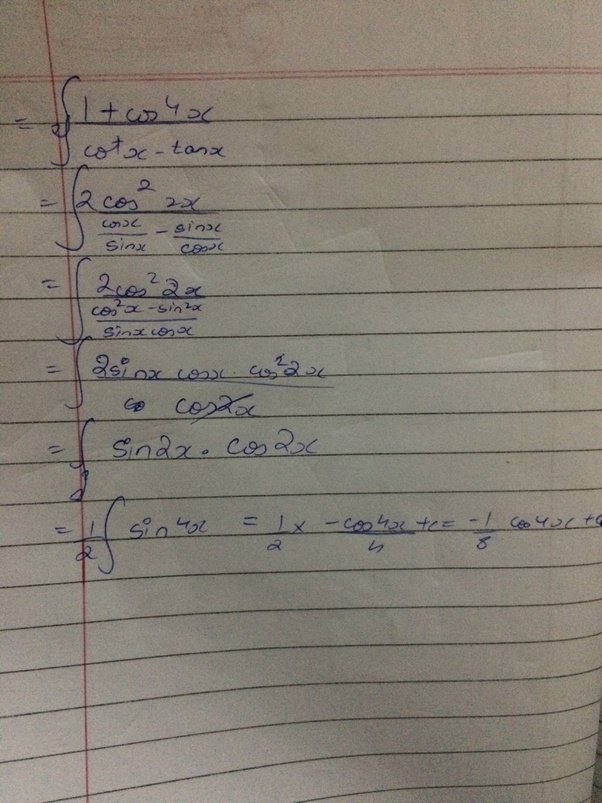 = ∫ (1 + cos 4x) / (cot x - tan x)
= ∫ (2cos² 2x) / (cosx/sinx - sinx/cosx)
= ∫ (2cos² 2x) / ((cos²x - sin²x) / (sinx cosx))
= ∫ (2sinx cosx · cos² 2x) / (cos2x)
= ∫ sin2x · cos2x
= 1/2 ∫ sin 4x = 1/2 × (-cos4x)/4 + c = -1/8 cos4x + c